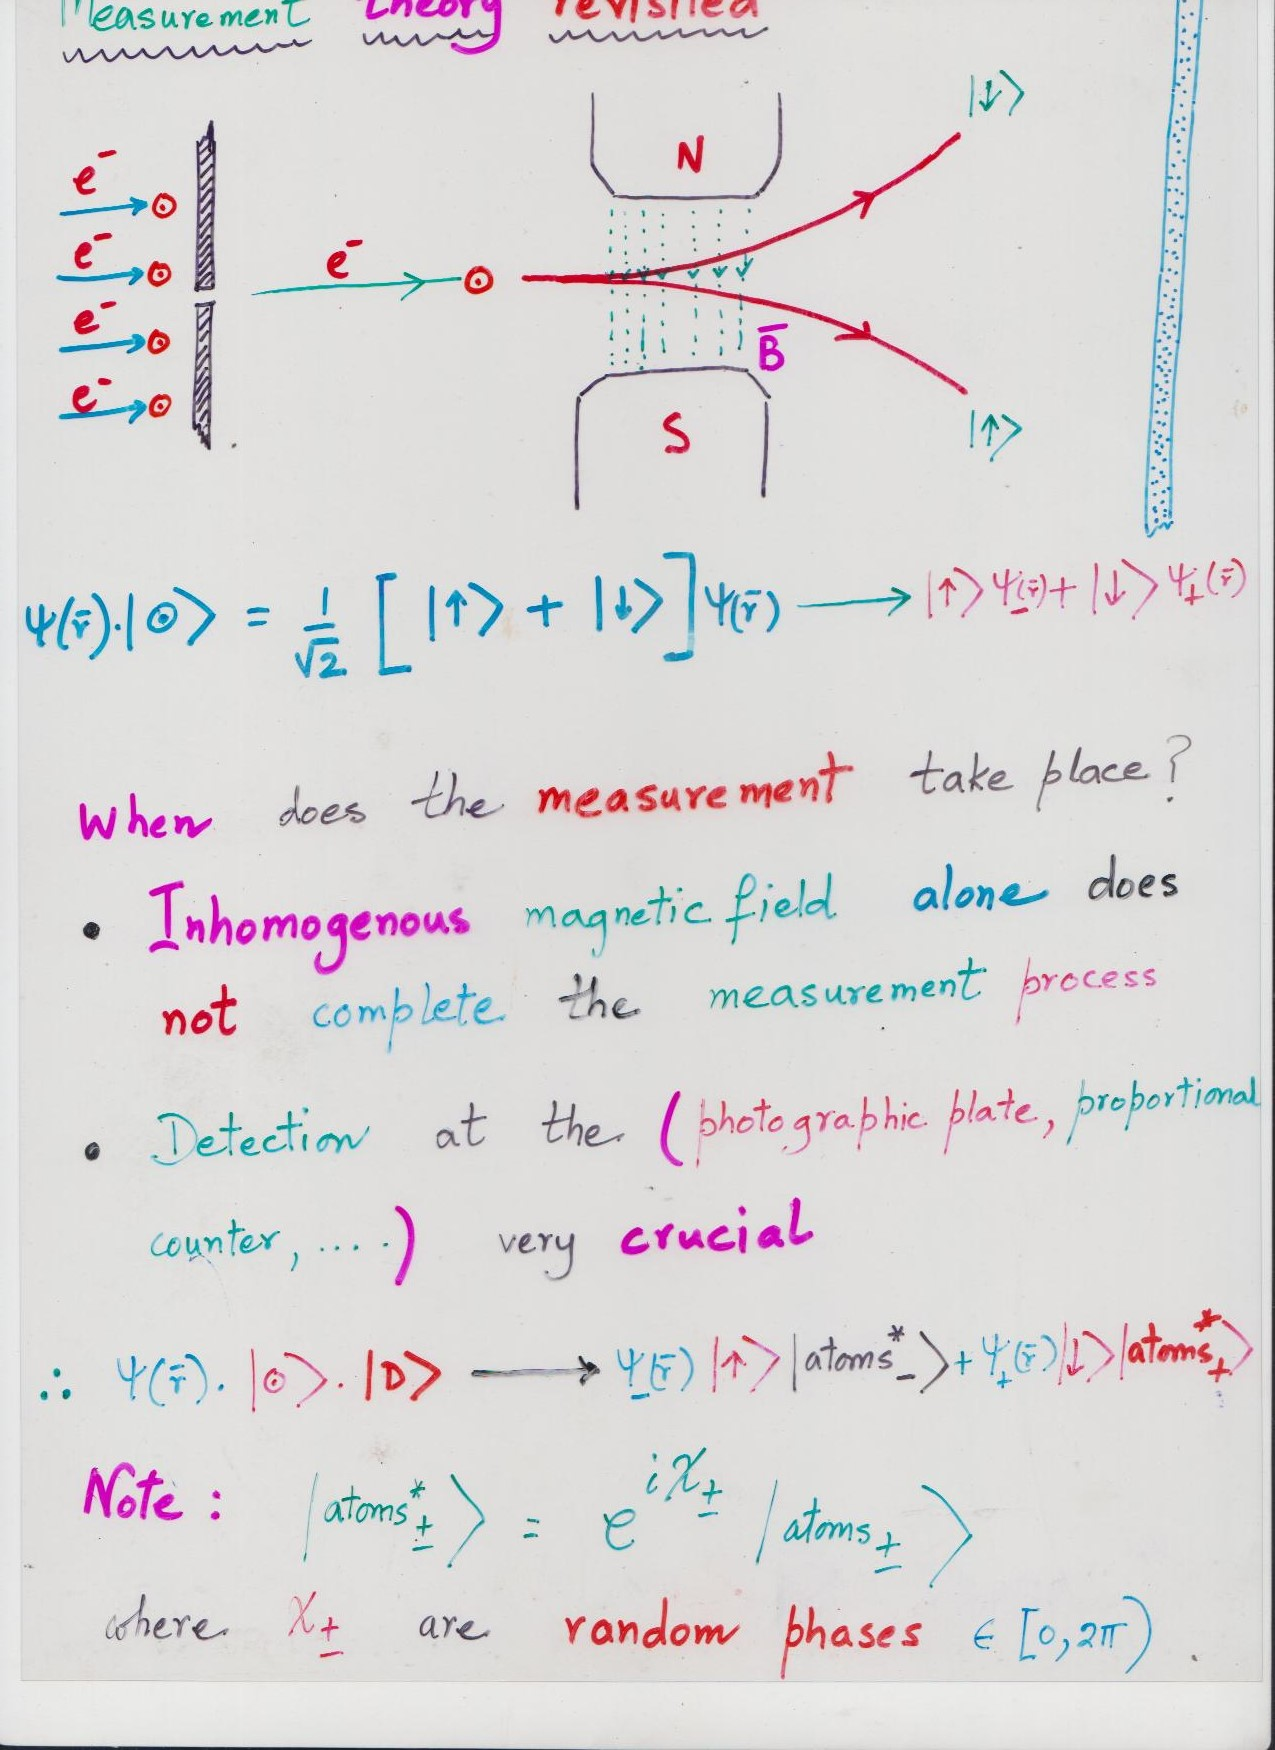 Measurement theory revisited
|↓⟩
N
e⁻
e⁻
e⁻
e⁻
e⁻
B̄
S
|↑⟩
ψ(r̄).|⊙⟩ = 1/√2 [ |↑⟩ + |↓⟩ ] ψ(r̄) ⟶ |↑⟩ ψ₋(r̄) + |↓⟩ ψ₊(r̄)
When does the measurement take place?
• Inhomogenous magnetic field alone does
not complete the measurement process
• Detection at the (photographic plate, proportional
counter, .....) very crucial
∴ ψ(r̄). |⊙⟩. |D⟩ ⟶ ψ₋(r̄) |↑⟩ |atoms*₋⟩ + ψ₊(r̄) |↓⟩ |atoms*₊⟩
Note: |atoms*±⟩ = e^{iχ±} |atoms±⟩
where χ± are random phases ∈ [0, 2π)